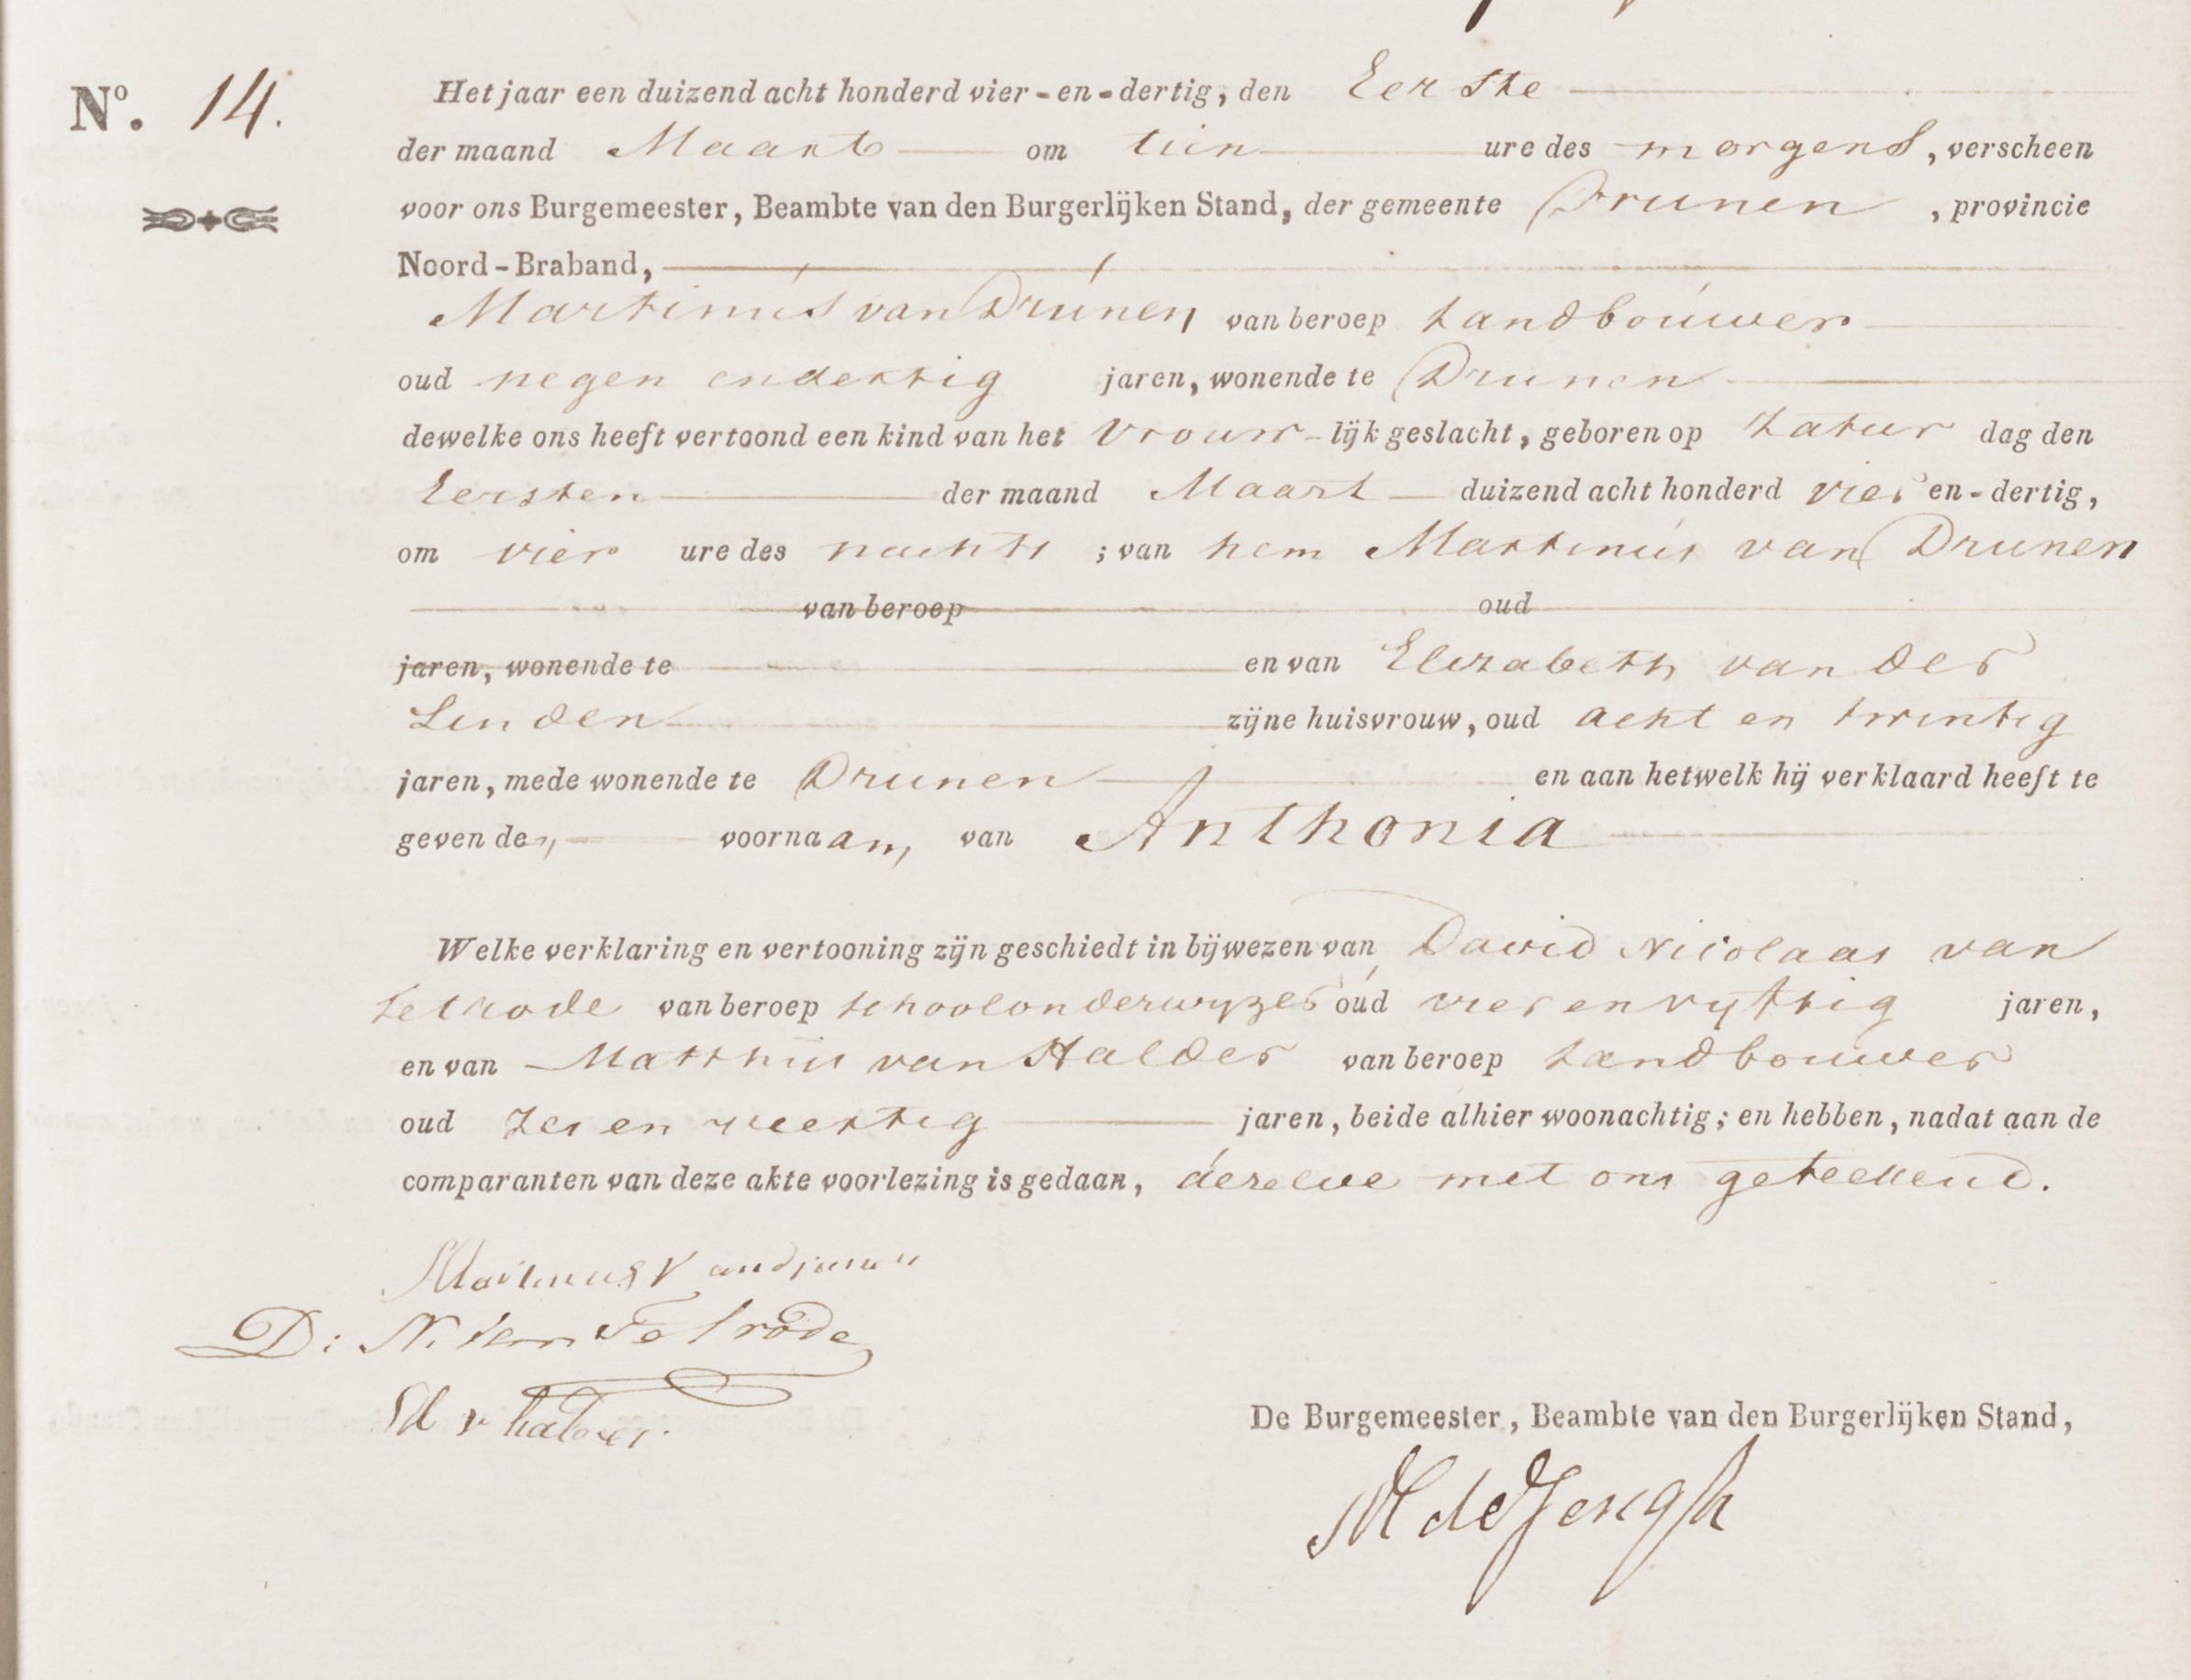 Nº. 14.
Het jaar een duizend acht honderd vier-en-dertig, den Eerste
der maand Maart om tien ure des morgens, verscheen
voor ons Burgemeester, Beambte van den Burgerlijken Stand, der gemeente Drunen, provincie
Noord-Braband,
Martinus van Drunen van beroep Landbouwer
oud negen endertig jaren, wonende te Drunen
dewelke ons heeft vertoond een kind van het Vrouw-lijk geslacht, geboren op Zatur dag den
Eersten der maand Maart duizend acht honderd vier en-dertig,
om vier ure des nachts ; van hem Martinus van Drunen
van beroep oud
jaren, wonende te en van Elizabeth van der
Linden zijne huisvrouw, oud acht en twintig
jaren, mede wonende te Drunen en aan hetwelk hij verklaard heeft te
geven den voornaam van Anthonia
Welke verklaring en vertooning zijn geschiedt in bijwezen van David Nicolaas van
Tetrode van beroep schoolonderwyzer oud vier en vyftig jaren,
en van Matthys van Halder van beroep Landbouwer
oud Zes en veertig jaren, beide alhier woonachtig; en hebben, nadat aan de
comparanten van deze akte voorlezing is gedaan, dezelve met ons geteekend.
Martinus van drunen
D: N. van Tetrode
M v halder
De Burgemeester, Beambte van den Burgerlijken Stand,